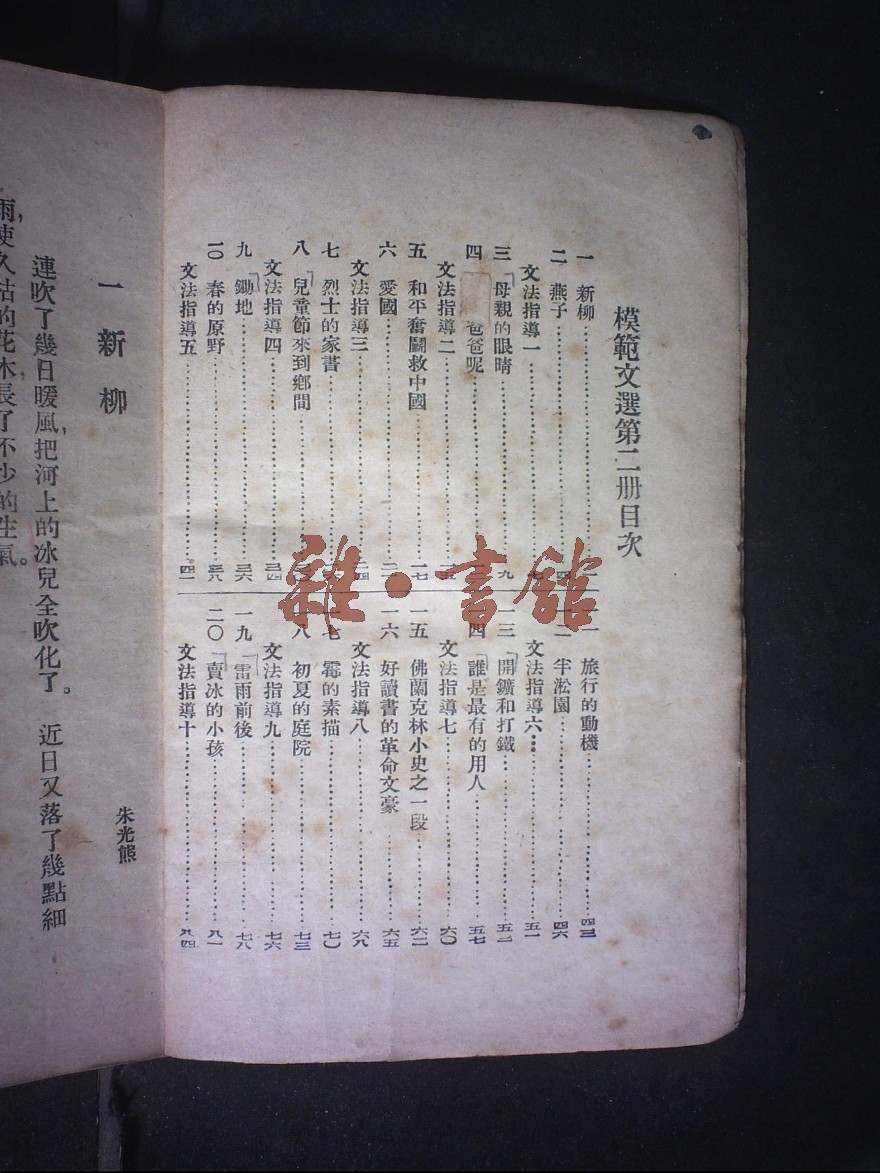 模範文選第二册目次
一 新柳
二 燕子
文法指導一
三 母親的眼睛 九
四 爸爸呢
文法指導二
五 和平奮鬭救中國 一七
六 愛國
文法指導三 二四
七 烈士的家書
八 兒童節來到鄉間
文法指導四 三四
九 鋤地 三六
一〇 春的原野 三八
文法指導五 四一
旅行的動機 四三
半淞園 四六
文法指導六 五一
開鑛和打鐵 五二
誰是最有的用人 五七
文法指導七 六〇
一五 佛蘭克林小史之一段 六二
一六 好讀書的革命文豪 六五
文法指導八 六九
霉的素描 七〇
一八 初夏的庭院 七三
文法指導九 七六
一九 雷雨前後 七八
二〇 賣冰的小孩 八一
文法指導十 八四
一 新柳
朱光熊
連吹了幾日暖風,把河上的冰兒全吹化了。 近日又落了幾點細
雨,使久枯的花木,長了不少的生氣。
雜·書館